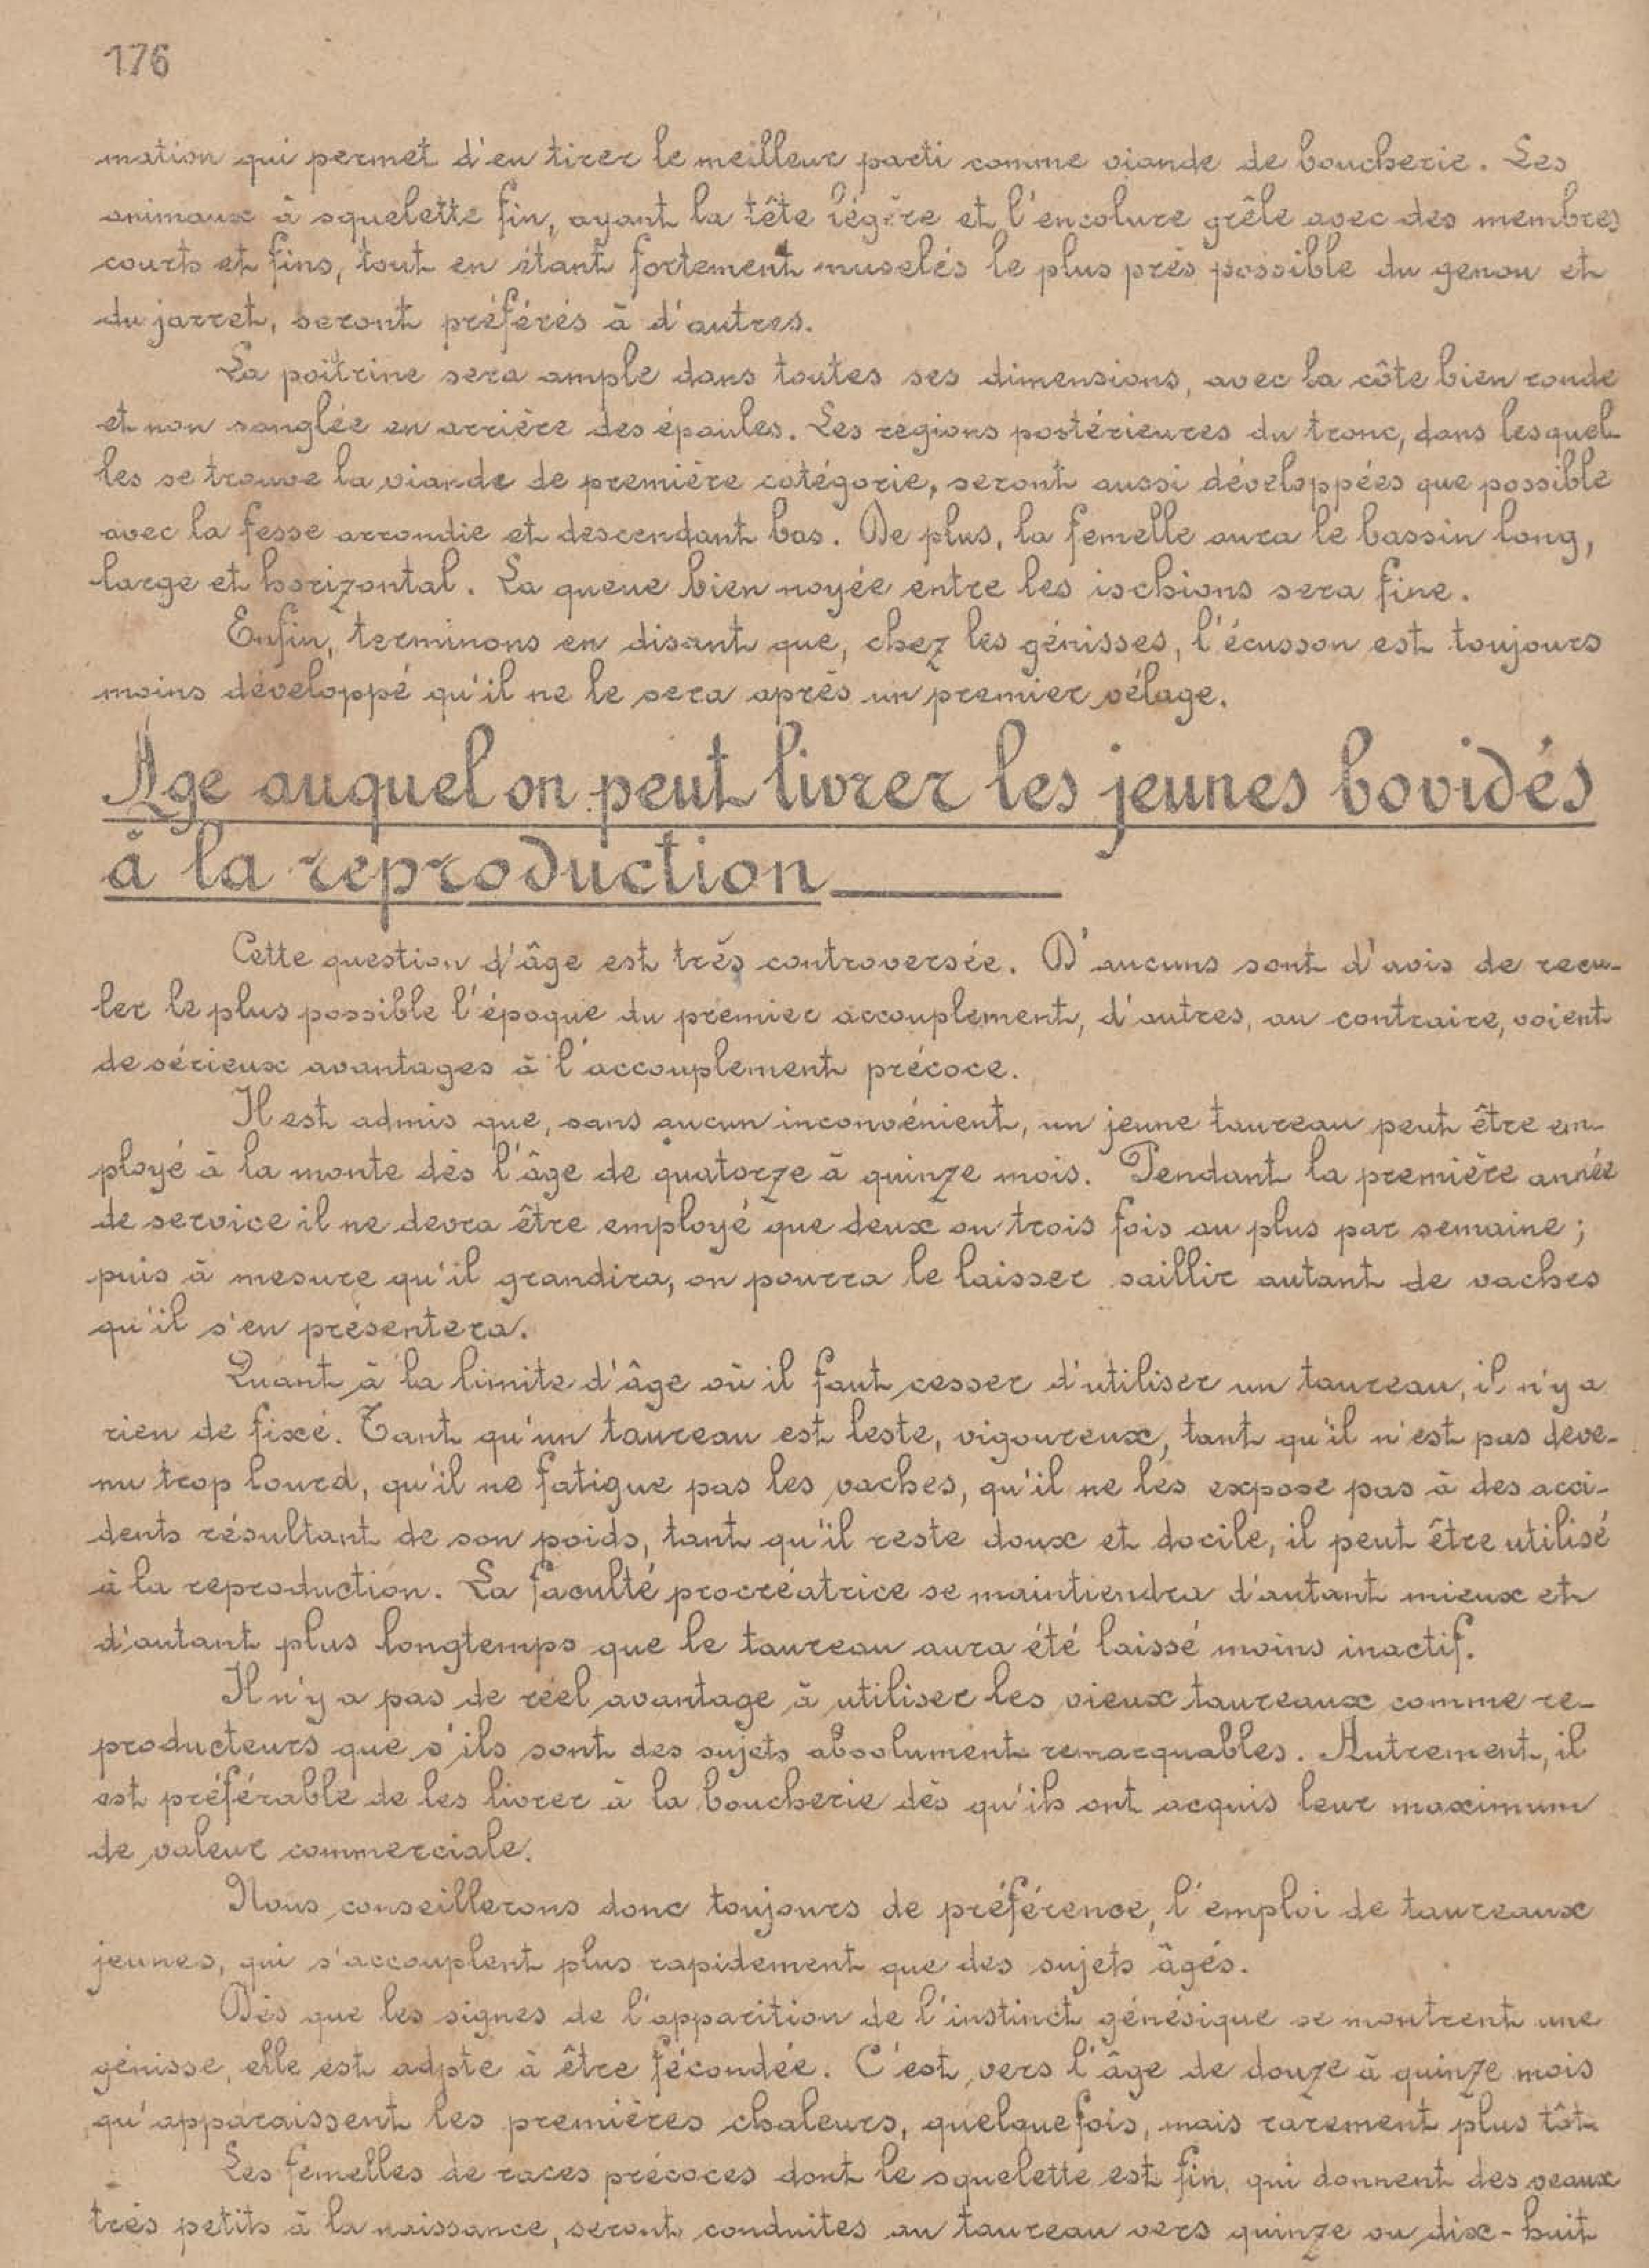 176
mation qui permet d'en tirer le meilleur parti comme viande de boucherie. Les
animaux à squelette fin, ayant la tête légère et l'encolure grêle avec des membres
courts et fins, tout en étant fortement muselés le plus près possible du genou et
du jarret, seront préférés à d'autres.
La poitrine sera ample dans toutes ses dimensions, avec la côte bien ronde
et non sanglée en arrière des épaules. Les régions postérieures du tronc, dans lesquel-
les se trouve la viande de première catégorie, seront aussi développées que possible
avec la fesse arrondie et descendant bas. De plus, la femelle aura le bassin long,
large et horizontal. La queue bien noyée entre les ischions sera fine.
Enfin, terminons en disant que, chez les génisses, l'écusson est toujours
moins développé qu'il ne le sera après un premier vélage.
Age auquel on peut livrer les jeunes bovidés
à la reproduction
Cette question d'âge est très controversée. D'aucuns sont d'avis de recu-
ler le plus possible l'époque du premier accouplement, d'autres, au contraire, voient
de sérieux avantages à l'accouplement précoce.
Il est admis que, sans aucun inconvénient, un jeune taureau peut être em-
ployé à la monte dès l'âge de quatorze à quinze mois. Pendant la première année
de service il ne devra être employé que deux ou trois fois au plus par semaine ;
puis à mesure qu'il grandira, on pourra le laisser saillir autant de vaches
qu'il s'en présentera.
Quant à la limite d'âge où il faut cesser d'utiliser un taureau, il n'y a
rien de fixé. Tant qu'un taureau est leste, vigoureux, tant qu'il n'est pas deve-
nu trop lourd, qu'il ne fatigue pas les vaches, qu'il ne les expose pas à des acci-
dents résultant de son poids, tant qu'il reste doux et docile, il peut être utilisé
à la reproduction. La faculté procréatrice se maintiendra d'autant mieux et
d'autant plus longtemps que le taureau aura été laissé moins inactif.
Il n'y a pas de réel avantage à utiliser les vieux taureaux comme re-
producteurs que s'ils sont des sujets absolument remarquables. Autrement, il
est préférable de les livrer à la boucherie dès qu'ils ont acquis leur maximum
de valeur commerciale.
Nous conseillerons donc toujours de préférence, l'emploi de taureaux
jeunes, qui s'accouplent plus rapidement que des sujets âgés.
Dès que les signes de l'apparition de l'instinct génésique se montrent une
génisse, elle est adpte à être fécondée. C'est vers l'âge de douze à quinze mois
qu'apparaissent les premières chaleurs, quelquefois, mais rarement plus tôt.
Les femelles de races précoces dont le squelette est fin, qui donnent des veaux
très petits à la naissance, seront conduites au taureau vers quinze ou dix-huit